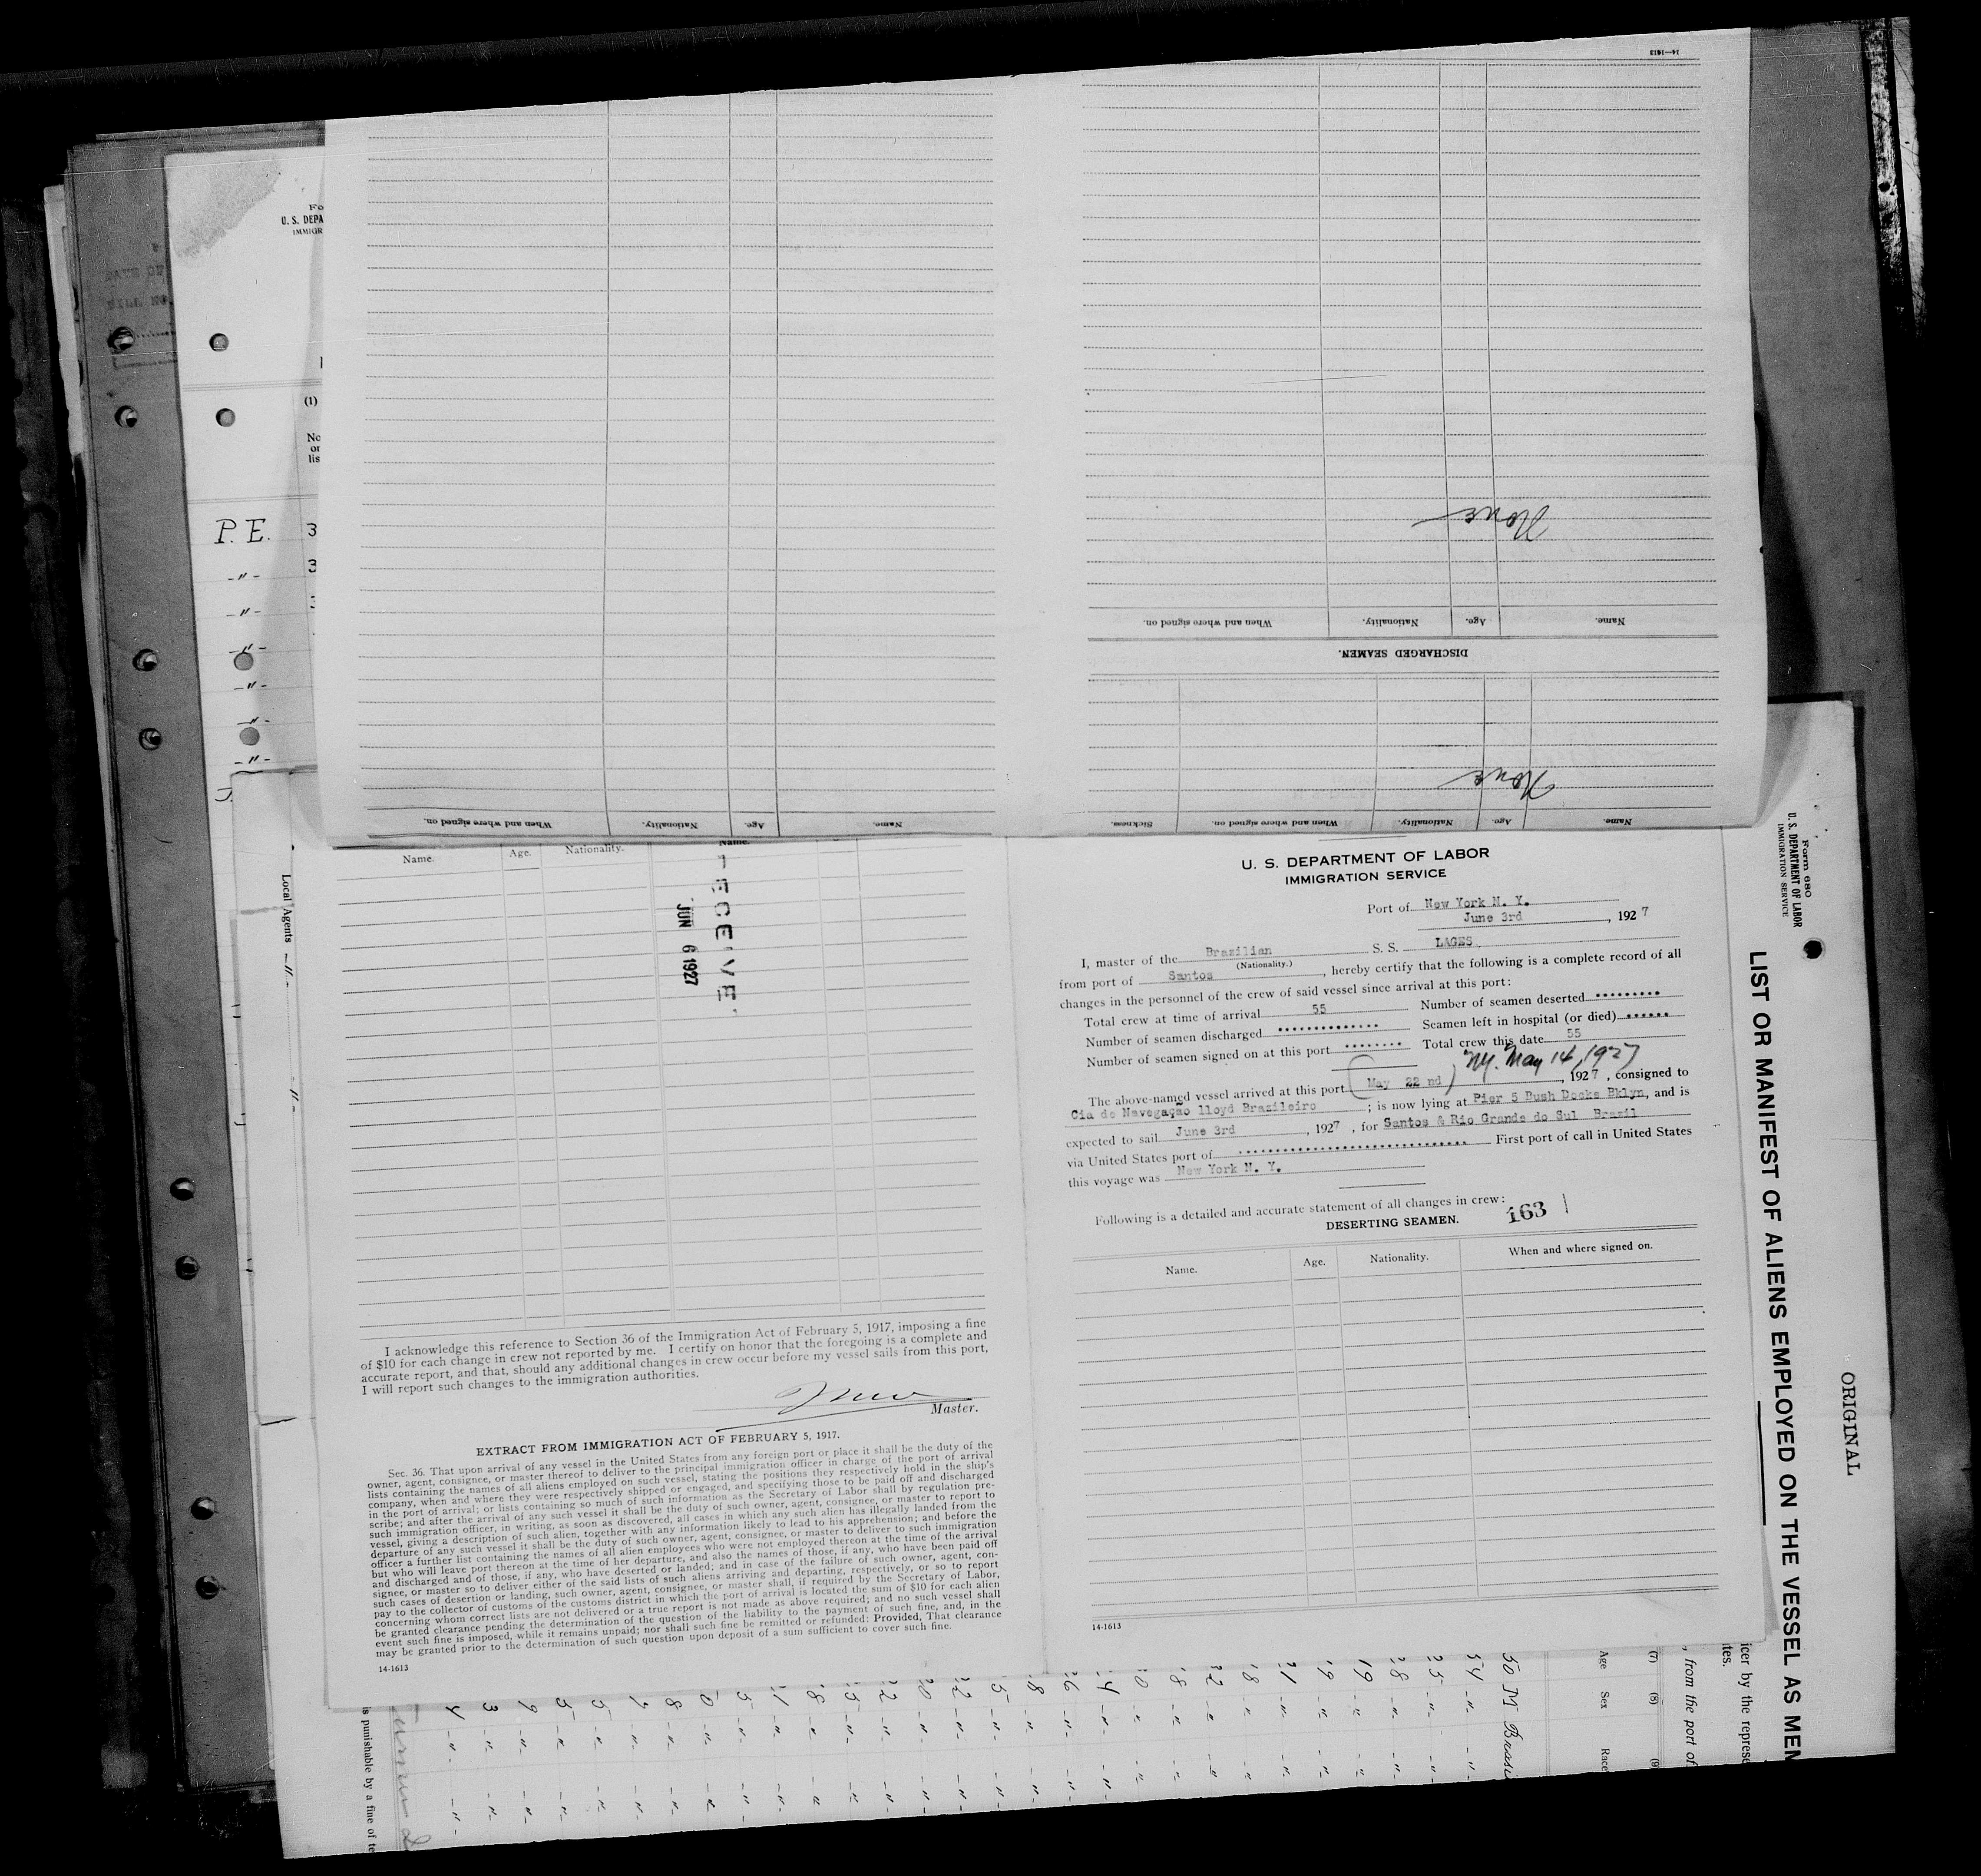 14—1613
None
Name. Age. Nationality. When and where signed on.
DISCHARGED SEAMEN.
None
Name. Age. Nationality. When and where signed on. Sickness.
Name. Age. Nationality. When and where signed on.
U. S. DEPA
IMMIGR
(1)
No
lis
P. E. 3
-"- 3
-"-
-"-
-"-
-"-
-"-
Local Agents -"-
Name. Age. Nationality. Name.
JUN 6 1927
I acknowledge this reference to Section 36 of the Immigration Act of February 5, 1917, imposing a fine
of $10 for each change in crew not reported by me. I certify on honor that the foregoing is a complete and
accurate report, and that, should any additional changes in crew occur before my vessel sails from this port,
I will report such changes to the immigration authorities.
Master.
EXTRACT FROM IMMIGRATION ACT OF FEBRUARY 5, 1917.
Sec. 36. That upon arrival of any vessel in the United States from any foreign port or place it shall be the duty of the
owner, agent, consignee, or master thereof to deliver to the principal immigration officer in charge of the port of arrival
lists containing the names of all aliens employed on such vessel, stating the positions they respectively hold in the ship's
company, when and where they were respectively shipped or engaged, and specifying those to be paid off and discharged
in the port of arrival; or lists containing so much of such information as the Secretary of Labor shall by regulation pre-
scribe; and after the arrival of any such vessel it shall be the duty of such owner, agent, consignee, or master to report to
such immigration officer, in writing, as soon as discovered, all cases in which any such alien has illegally landed from the
vessel, giving a description of such alien, together with any information likely to lead to his apprehension; and before the
departure of any such vessel it shall be the duty of such owner, agent, consignee, or master to deliver to such immigration
officer a further list containing the names of all alien employees who were not employed thereon at the time of the arrival
but who will leave port thereon at the time of her departure, and also the names of those, if any, who have been paid off
and discharged and of those, if any, who have deserted or landed; and in case of the failure of such owner, agent, con-
signee, or master so to deliver either of the said lists of such aliens arriving and departing, respectively, or so to report
such cases of desertion or landing, such owner, agent, consignee, or master shall, if required by the Secretary of Labor,
pay to the collector of customs of the customs district in which the port of arrival is located the sum of $10 for each alien
concerning whom correct lists are not delivered or a true report is not made as above required; and no such vessel shall
be granted clearance pending the determination of the question of the liability to the payment of such fine, and, in the
event such fine is imposed, while it remains unpaid; nor shall such fine be remitted or refunded: Provided, That clearance
may be granted prior to the determination of such question upon deposit of a sum sufficient to cover such fine.
14-1613
U. S. DEPARTMENT OF LABOR
IMMIGRATION SERVICE
Port of New York N. Y.
June 3rd, 1927
I, master of the Brazilian S. S. LAGES
(Nationality.)
from port of Santos, hereby certify that the following is a complete record of all
changes in the personnel of the crew of said vessel since arrival at this port:
Total crew at time of arrival 55 Number of seamen deserted .........
Number of seamen discharged .............. Seamen left in hospital (or died) ......
Number of seamen signed on at this port ........ Total crew this date 55
NY. May 14, 1927
The above-named vessel arrived at this port (May 22 nd), 1927, consigned to
Cia de Navegação lloyd Brazileiro; is now lying at Pier 5 Bush Docks Bklyn, and is
expected to sail June 3rd, 1927, for Santos & Rio Grande do Sul Brazil
via United States port of .............................. First port of call in United States
this voyage was New York N. Y.
Following is a detailed and accurate statement of all changes in crew:
163
DESERTING SEAMEN.
Name. Age. Nationality. When and where signed on.
14-1613
Form 680
U. S. DEPARTMENT OF LABOR
IMMIGRATION SERVICE
ORIGINAL
LIST OR MANIFEST OF ALIENS EMPLOYED ON THE VESSEL AS MEM
icer by the represe
tes.
, from the port of
(7) (8) (9)
Age Sex Race
50 M
is punishable by a fine of te